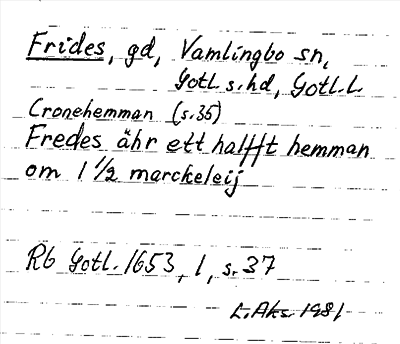 Frides, gd, Vamlingbo sn,
Gotl. s. hd, Gotl. L
Cronehemman (s. 35)
Fredes ähr ett halfft hemman
om 1 1/2 marckeleij
Rb Gotl. 1653, 1, s. 37
L. Aks. 1981